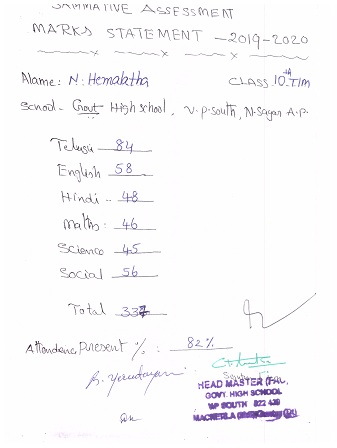 SAMMATIVE ASSESSMENT
MARKS STATEMENT - 2019-2020
Name: N. Hemalatha CLASS 10th T/M
School - Govt High school, V.P. South, N. Sagar A.P.
Telugu - 84
English 58
Hindi - 48
Maths: 46
Science 45
Social 56
Total 337
Attendence Present %: 82%
HEAD MASTER
GOVT. HIGH SCHOOL
VP SOUTH 522 439
MACHERLA